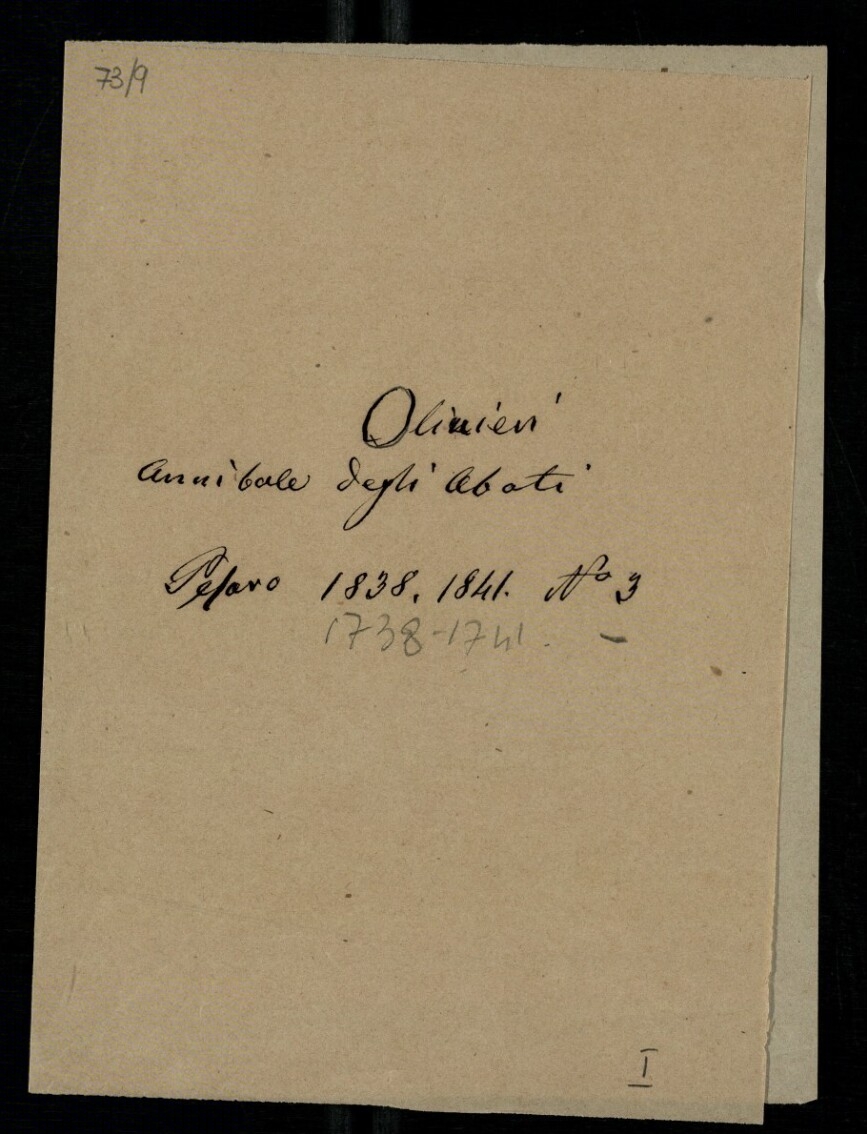 73/9
Olivieri
Annibale degli Abati
Pesaro 1838. 1841. No 3
1738-1741. -
I